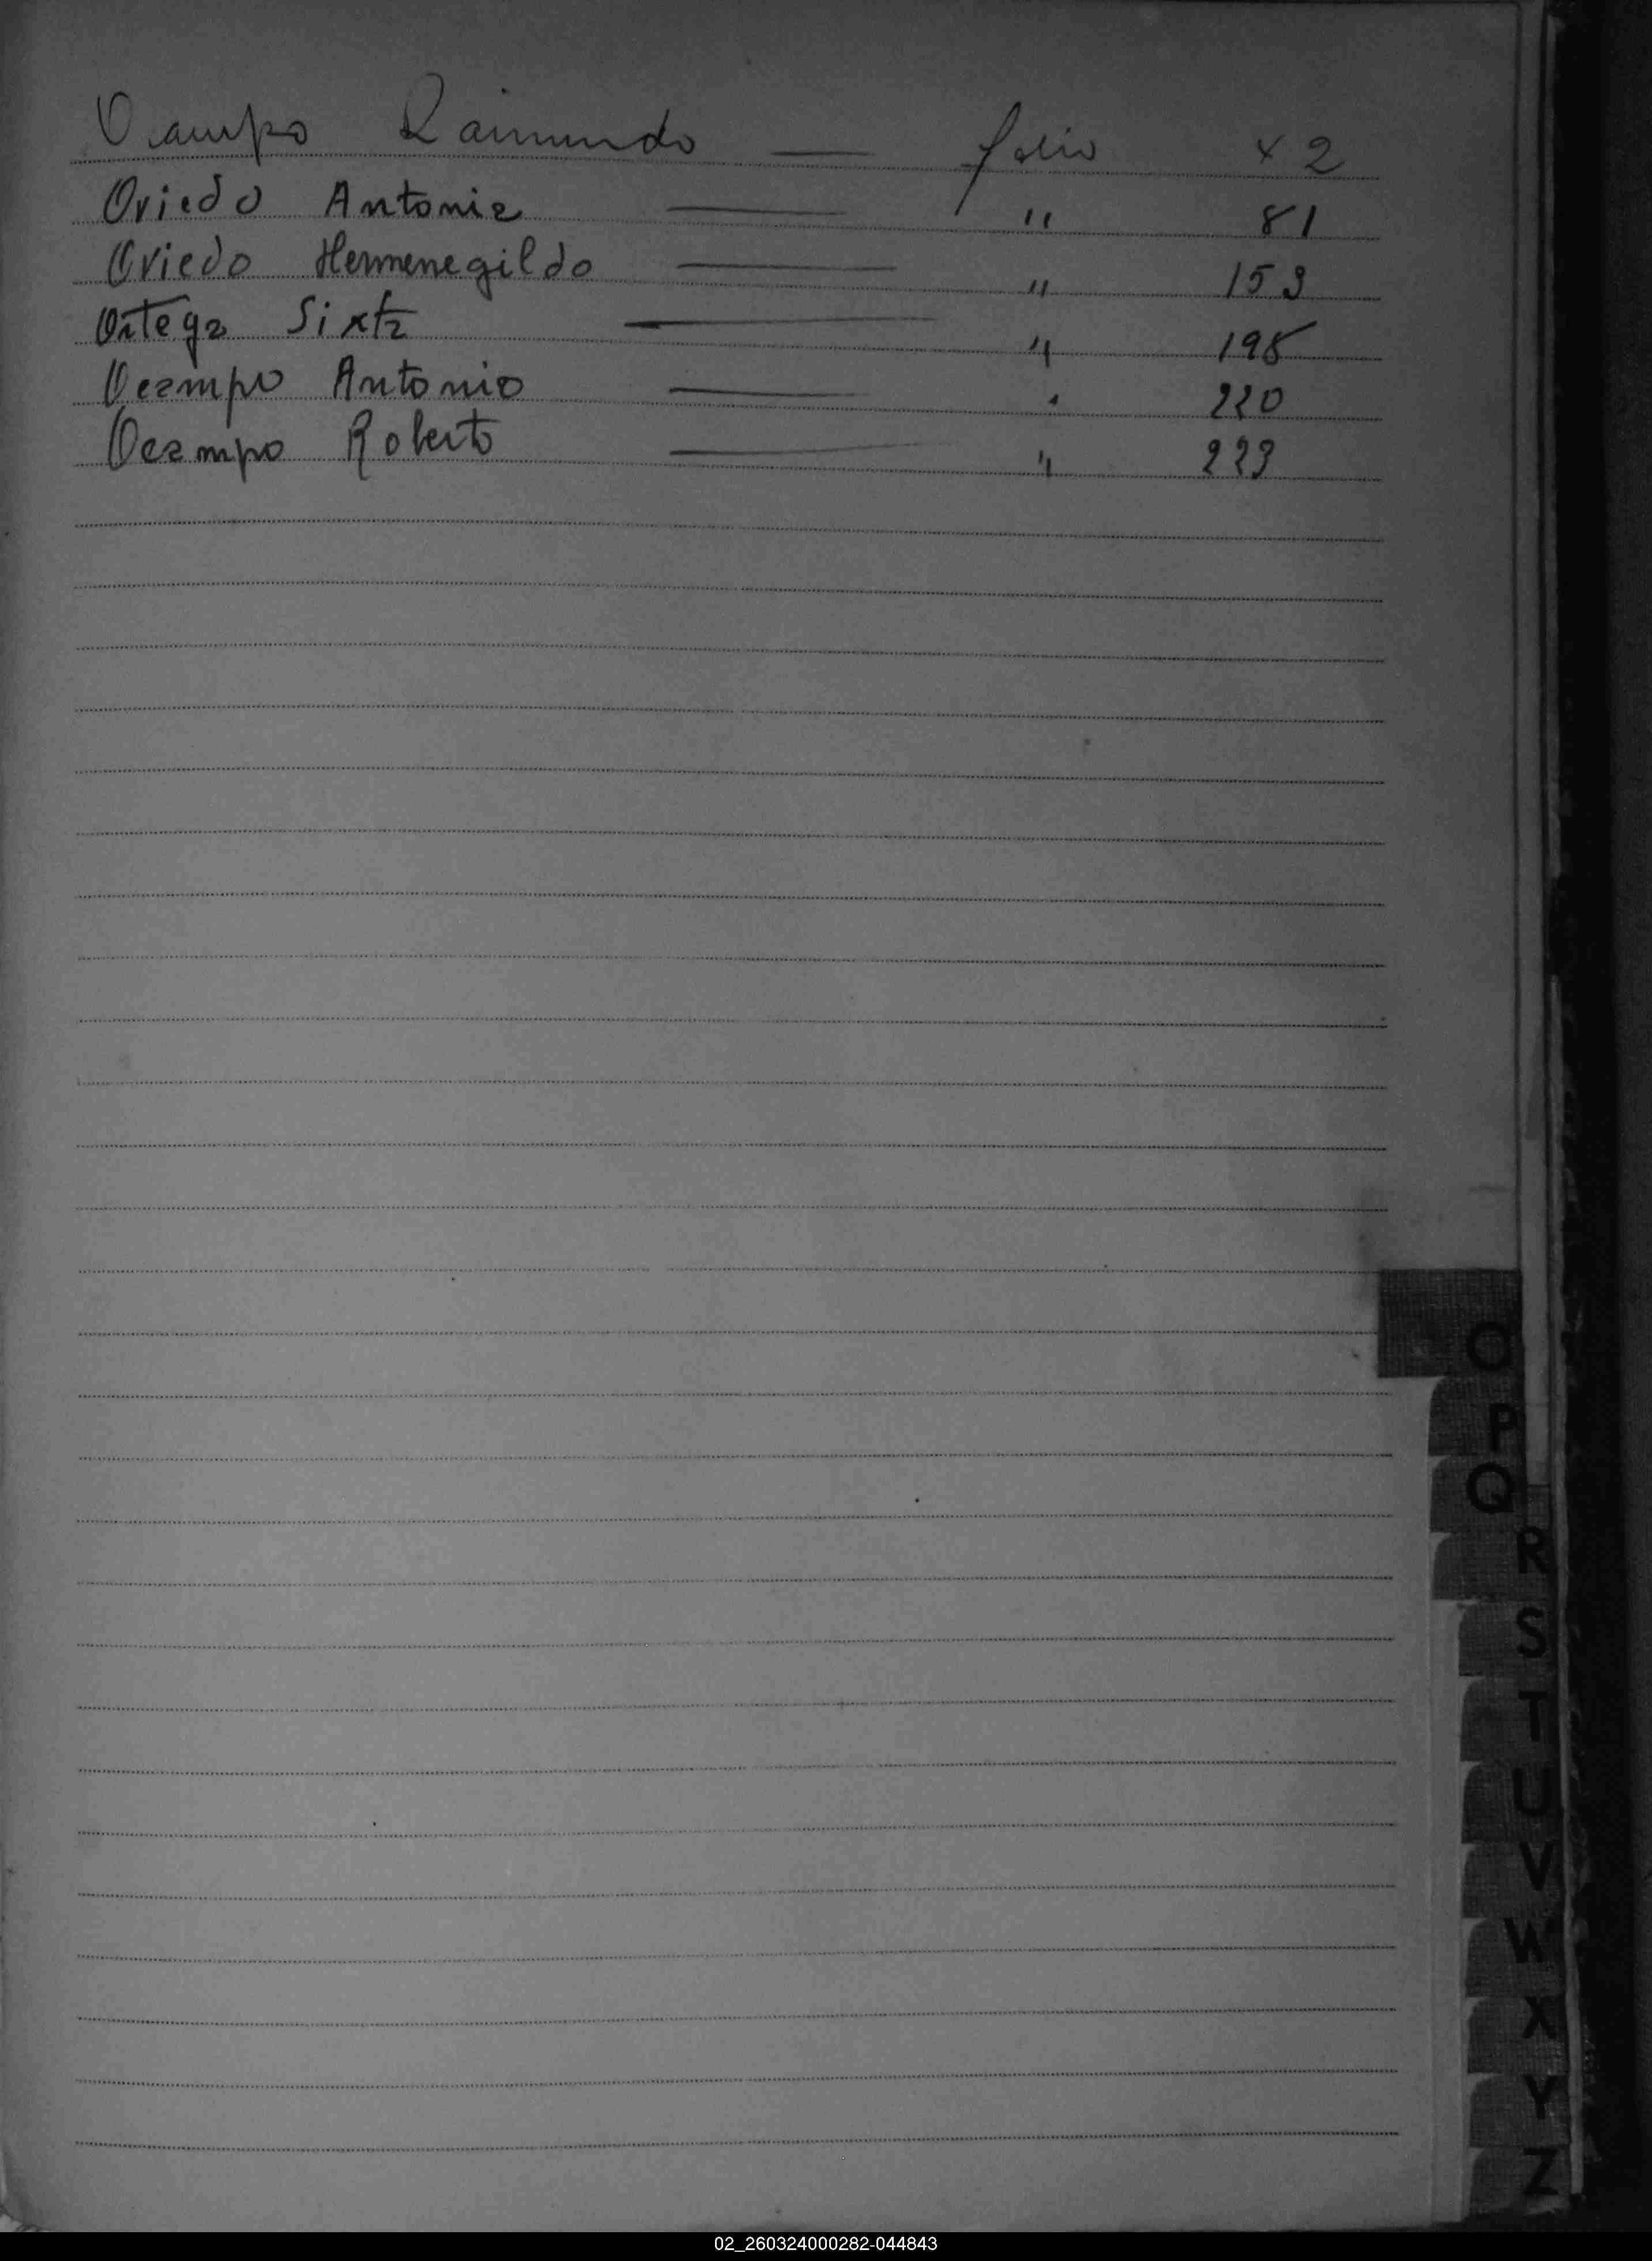 Ocampo Raimundo — folio 42
Oviedo Antonia — " 81
Oviedo Hermenegildo — " 153
Ortega Sixta — " 198
Ocampo Antonio — " 220
Ocampo Roberto — " 223
O
P
Q
R
S
T
U
V
W
X
Y
Z
02_260324000282-044843